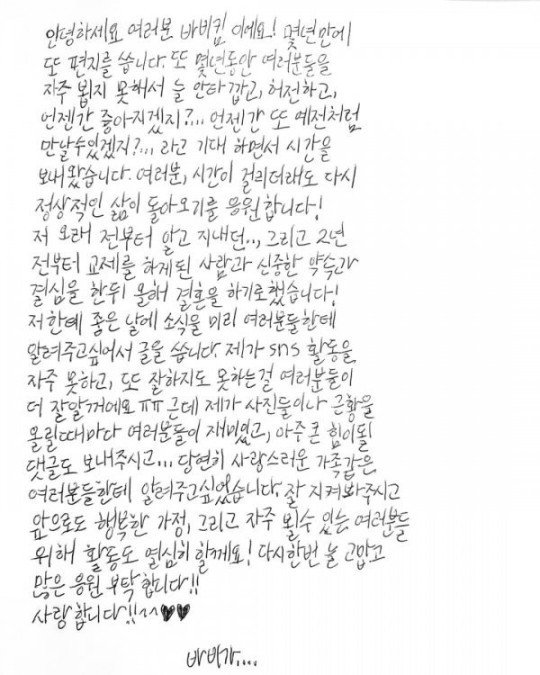 안녕하세요 여러분 바비킴 이에요! 몇년만에
또 편지를 씁니다. 또 몇년동안 여러분들을
자주 뵙지 못해서 늘 안타깝고, 허전하고,
언젠간 좋아지겠지?... 언젠간 또 예전처럼
만날수있겠지?... 라고 기대 하면서 시간을
보내왔습니다. 여러분, 시간이 걸리더래도 다시
정상적인 삶이 돌아오기를 응원합니다!
저 오래 전부터 알고 지내던..., 그리고 2년
전부터 교제를 하게된 사람과 신중한 약속과
결심을 한뒤 올해 결혼을 하기로했습니다!
저한테 좋은 날에 소식을 미리 여러분들한테
알려주고싶어서 글을 씁니다. 제가 sns 활동을
자주 못하고, 또 잘하지도 못하는걸 여러분들이
더 잘알꺼에요 ㅠㅠ 근데 제가 사진들이나 근황을
올릴때마다 여러분들이 재미있고, 아주 큰 힘이될
댓글도 보내주시고... 당연히 사랑스러운 가족같은
여러분들한테 알려주고싶었습니다. 잘 지켜봐주시고
앞으로도 행복한 가정, 그리고 자주 뵐수 있는 여러분들
위해 활동도 열심히 할게요! 다시한번 늘 고맙고
많은 응원 부탁합니다!!
사랑합니다!!^^♥♥
바비가....